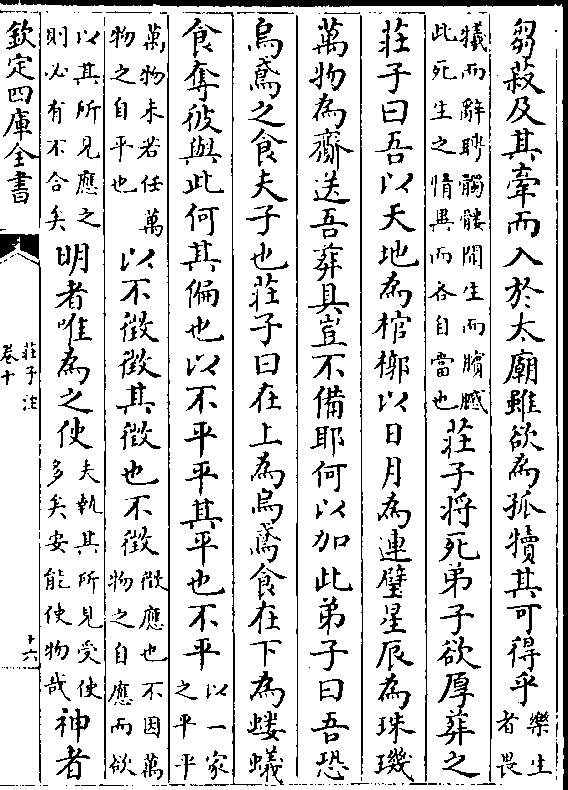 芻菽及其牽而入於太廟雖欲為孤犢其可得乎樂生者畏
犧而辭聘髑髏聞生而矉慼此死生之情異而各自當也莊子將死弟子欲厚葬之
莊子曰吾以天地為棺槨以日月為連璧星辰為珠璣
萬物為齎送吾葬具豈不備耶何以加此弟子曰吾恐
烏鳶之食夫子也莊子曰在上為烏鳶食在下為螻蟻
食奪彼與此何其偏也以不平平其平也不平以一家之平平
萬物未若任萬物之自平也以不徵徵其徵也不徵徵應也不因萬物之自應而欲
以其所見應之則必有不合矣明者唯為之使夫執其所見受使多矣安能使物哉神者
欽定四庫全書
莊子注
卷十
十六